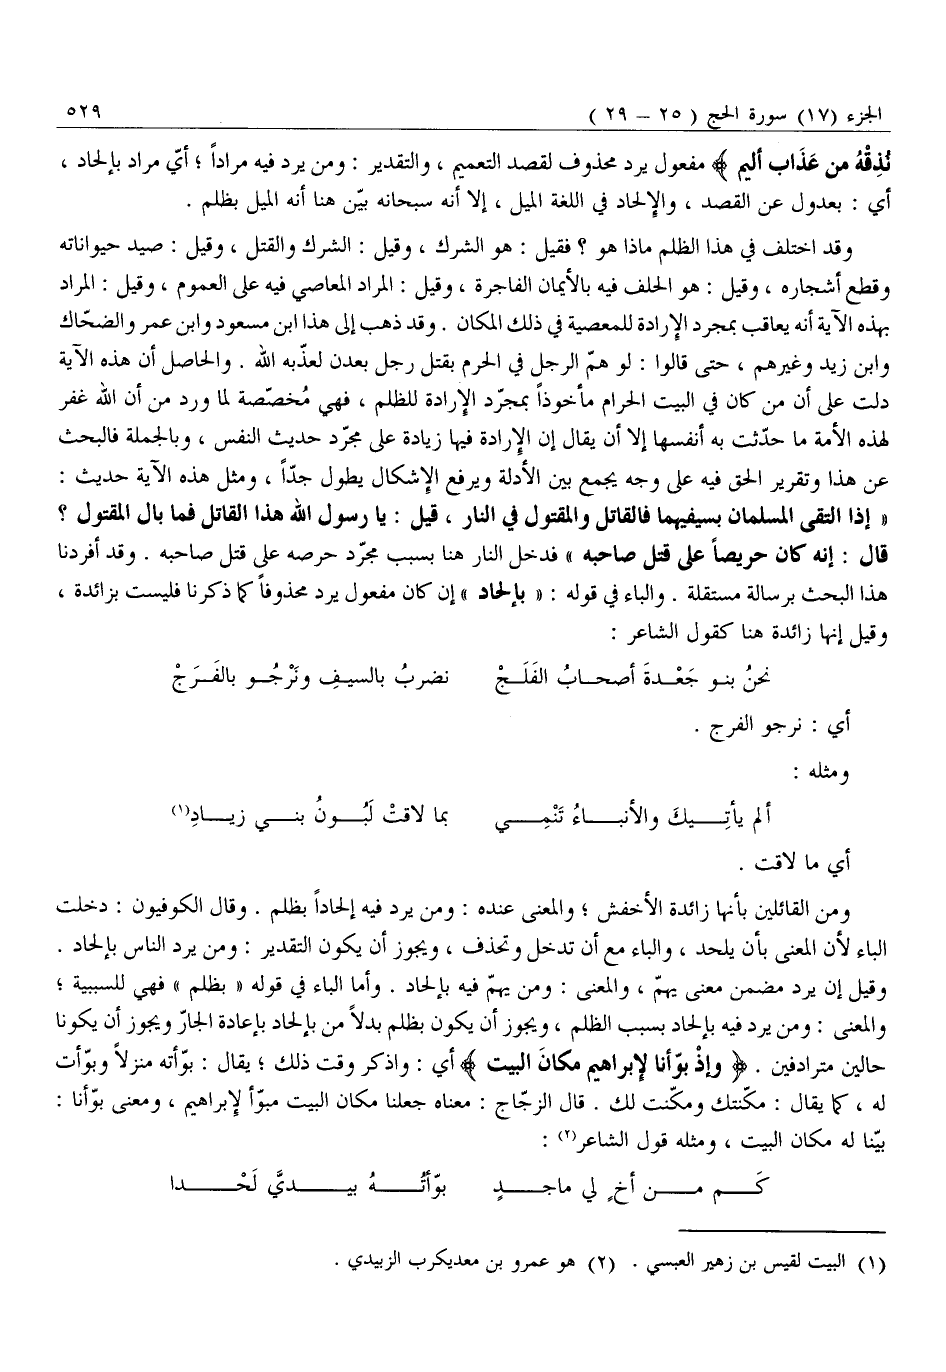 الجزء (١٧) سورة الحج ( ٢٥ – ٢٩ ) ٥٢٩
نُذِقْهُ من عَذَاب أليم ﴾ مفعول يرد محذوف لقصد التعميم ، والتقدير : ومن يرد فيه مراداً ؛ أيّ مراد بإلحاد ،
أي : بعدول عن القصد ، والإلحاد في اللغة الميل ، إلا أنه سبحانه بيّن هنا أنه الميل بظلم .
وقد اختلف في هذا الظلم ماذا هو ؟ فقيل : هو الشرك ، وقيل : الشرك والقتل ، وقيل : صيد حيواناته
وقطع أشجاره ، وقيل : هو الحلف فيه بالأيمان الفاجرة ، وقيل : المراد المعاصي فيه على العموم ، وقيل : المراد
بهذه الآية أنه يعاقب بمجرد الإرادة للمعصية في ذلك المكان . وقد ذهب إلى هذا ابن مسعود وابن عمر والضحّاك
وابن زيد وغيرهم ، حتى قالوا : لو همّ الرجل في الحرم بقتل رجل بعدن لعذّبه الله . والحاصل أن هذه الآية
دلت على أن من كان في البيت الحرام مأخوذاً بمجرّد الإرادة للظلم ، فهي مُخصّصة لما ورد من أن الله غفر
لهذه الأمة ما حدّثت به أنفسها إلا أن يقال إن الإرادة فيها زيادة على مجرّد حديث النفس ، وبالجملة فالبحث
عن هذا وتقرير الحق فيه على وجه يجمع بين الأدلة ويرفع الإشكال يطول جدّاً ، ومثل هذه الآية حديث :
« إذا التقى المسلمان بسيفيهما فالقاتل والمقتول في النار ، قيل : يا رسول الله هذا القاتل فما بال المقتول ؟
قال : إنه كان حريصاً على قتل صاحبه » فدخل النار هنا بسبب مجرّد حرصه على قتل صاحبه . وقد أفردنا
هذا البحث برسالة مستقلة . والباء في قوله : « بإلحاد » إن كان مفعول يرد محذوفاً كما ذكرنا فليست بزائدة ،
وقيل إنها زائدة هنا كقول الشاعر :
نحنُ بنو جَعْدةَ أصحابُ الفَلَجْ نضربُ بالسيفِ ونَرْجُو بالفَرَجْ
أي : نرجو الفرج .
ومثله :
ألم يأتِيكَ والأنباءُ تَنْمِي بما لاقتْ لَبُونُ بني زيادِ(١)
أي ما لاقت .
ومن القائلين بأنها زائدة الأخفش ؛ والمعنى عنده : ومن يرد فيه إلحاداً بظلم . وقال الكوفيون : دخلت
الباء لأن المعنى بأن يلحد ، والباء مع أن تدخل وتحذف ، ويجوز أن يكون التقدير : ومن يرد الناس بإلحاد .
وقيل إن يرد مضمن معنى يهمّ ، والمعنى : ومن يهمّ فيه بإلحاد . وأما الباء في قوله « بظلم » فهي للسببية ؛
والمعنى : ومن يرد فيه بإلحاد بسبب الظلم ، ويجوز أن يكون بظلم بدلاً من بإلحاد بإعادة الجارّ ويجوز أن يكونا
حالين مترادفين . ﴿ وإذْ بوّأنا لإبراهيم مكانَ البيت ﴾ أي : واذكر وقت ذلك ؛ يقال : بوّأته منزلاً وبوّأت
له ، كما يقال : مكّنتك ومكّنت لك . قال الزجّاج : معناه جعلنا مكان البيت مبوّأ لإبراهيم ، ومعنى بوّأنا :
بيّنا له مكان البيت ، ومثله قول الشاعر(٢) :
كَم من أخٍ لي ماجدٍ بوّأتُهُ بيديَّ لَحْدا
(١) البيت لقيس بن زهير العبسي . (٢) هو عمرو بن معديكرب الزبيدي .